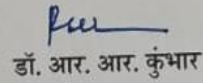 डॉ. आर. आर. कुंभार